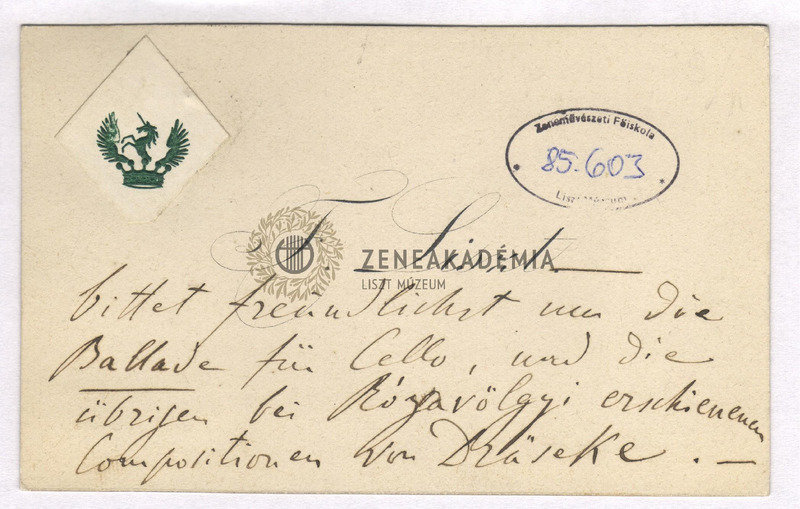 Zeneművészeti Főiskola
85.603
Liszt Múzeum
F. Liszt
ZENEAKADÉMIA
LISZT MÚZEUM
bittet freundlichst um die
Ballade für Cello, und die
übrigen bei Rózsavölgyi erschienenen
Compositionen von Dräseke. —